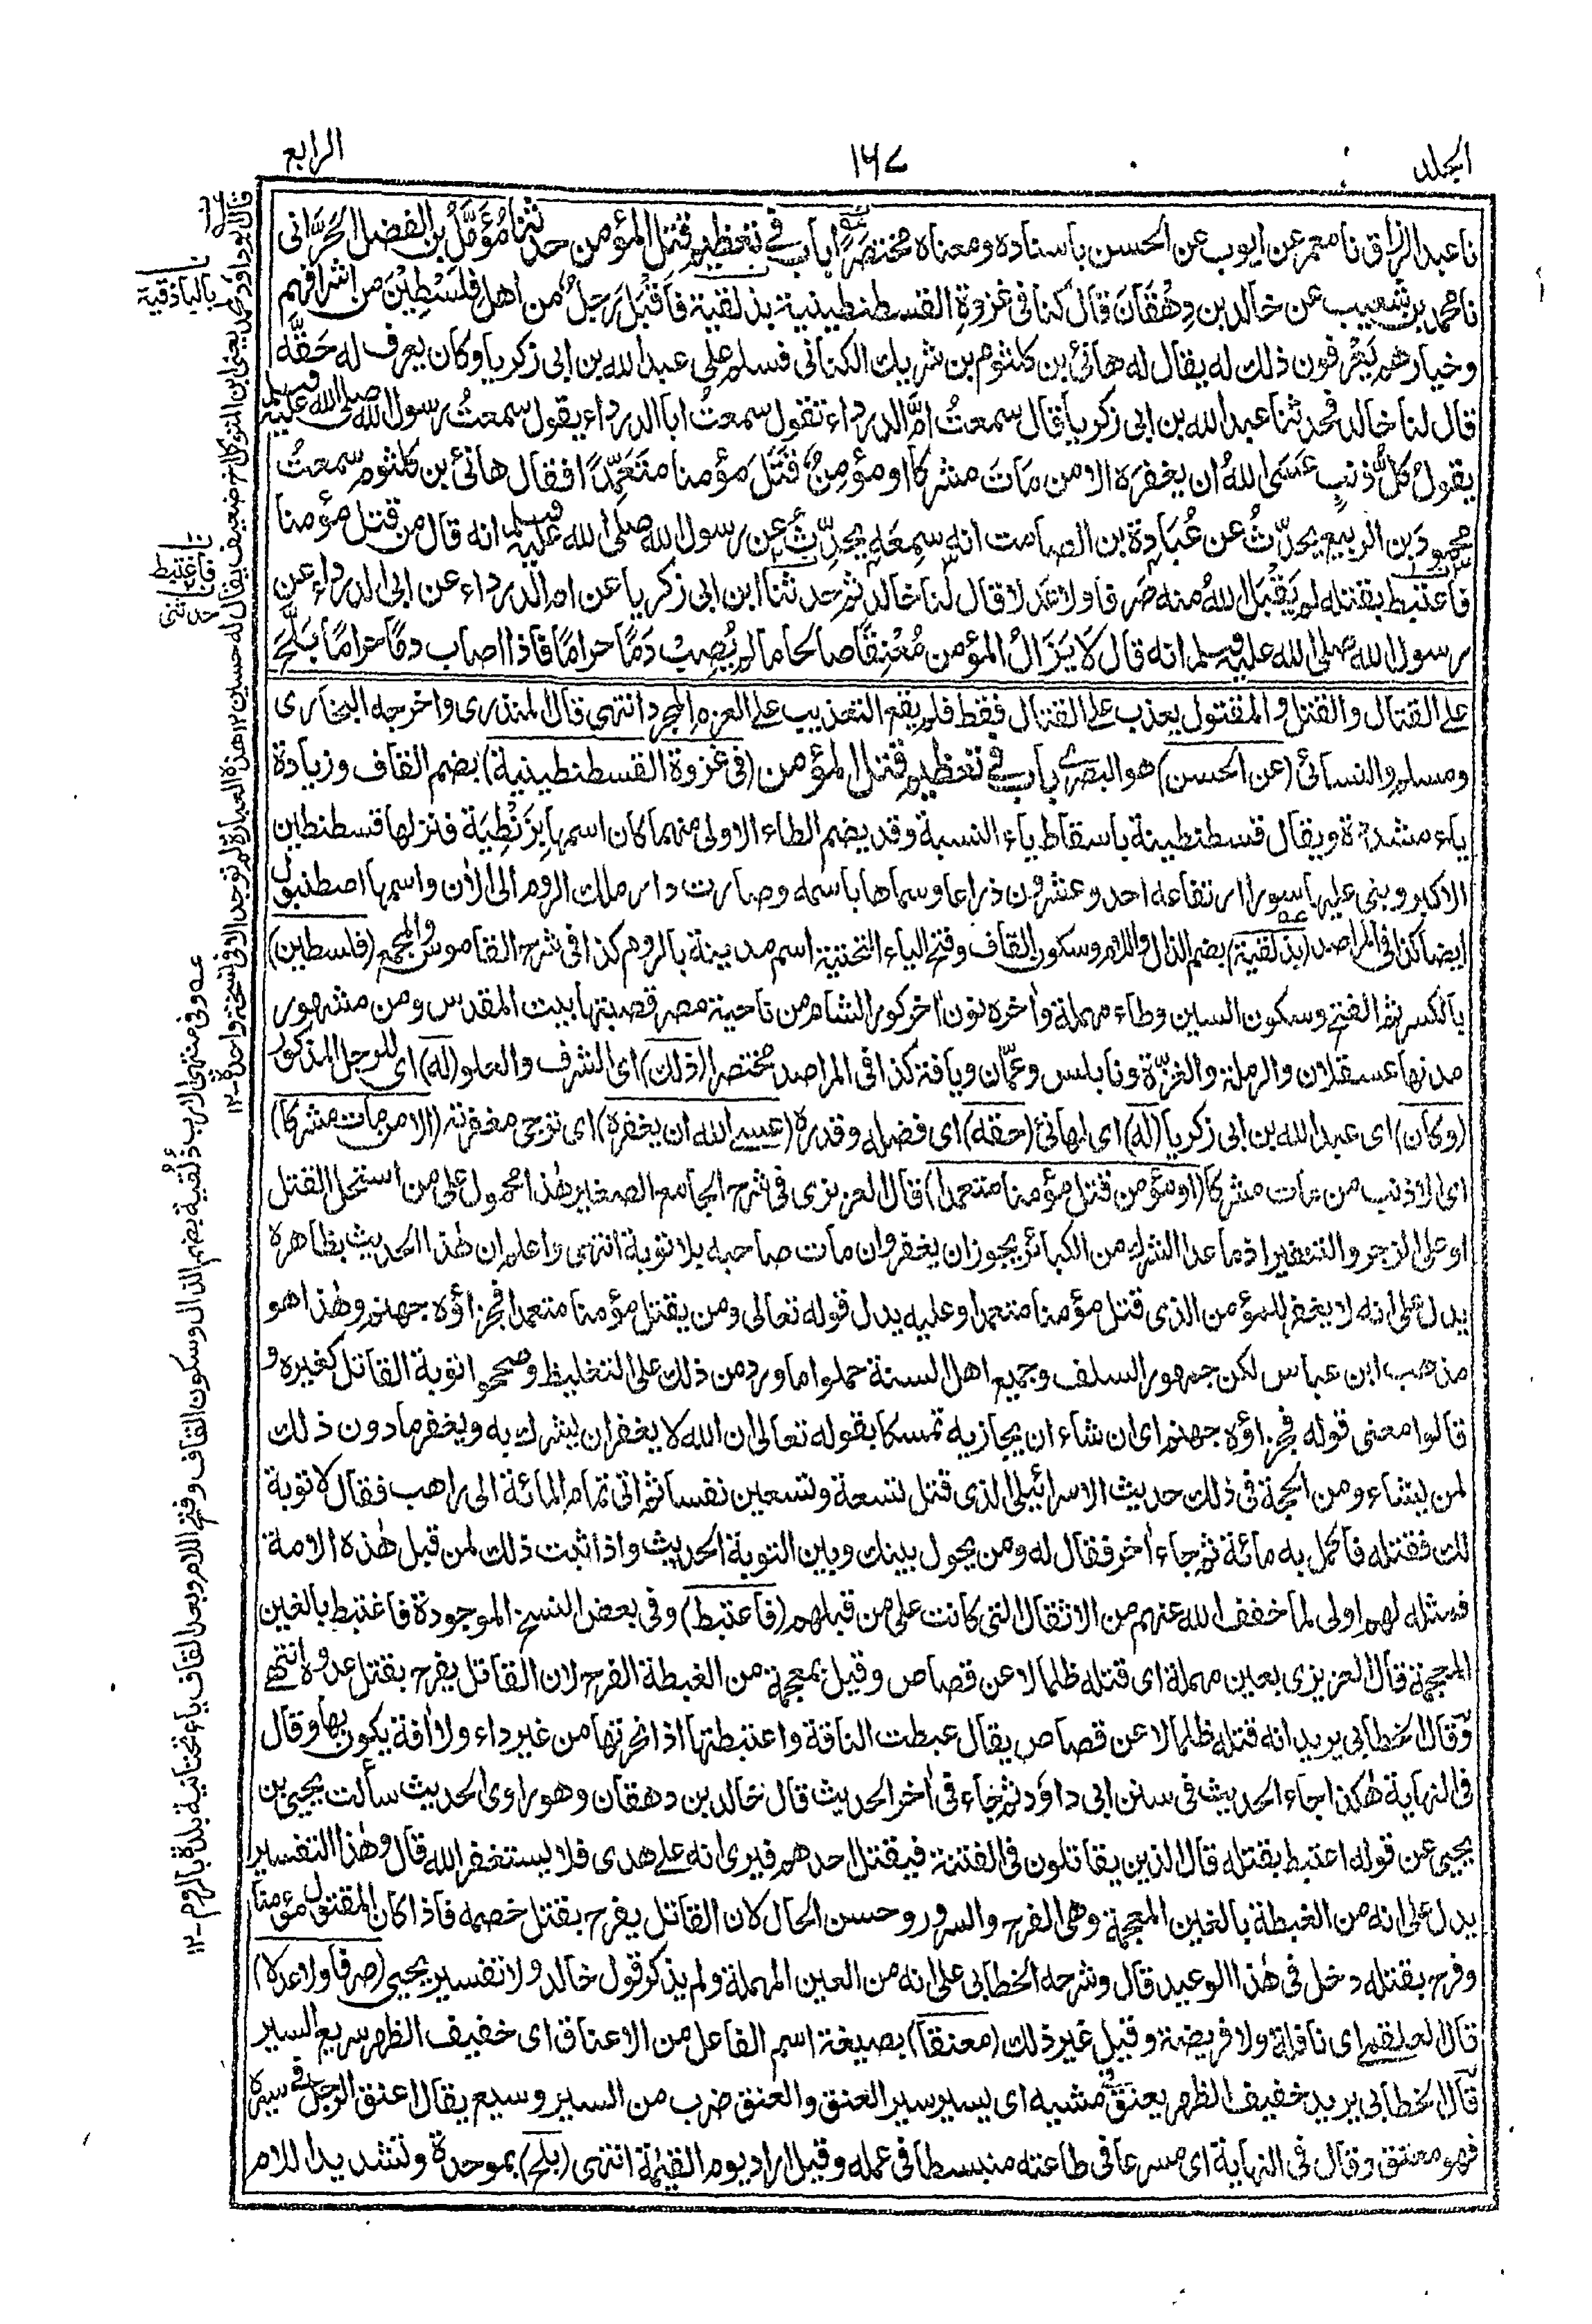 الجلد
١٦٧
الرابع
نا عبد الرزاق نا معمر عن ايوب عن الحسن باسناده ومعناه مختصرًا باب في تعظيم قتل المؤمن حدثنا مُؤَمَّلُ بن الفضل الحَرَّانى
نا محمد بن شعيب عن خالد بن دِهْقَانَ قال كنا فى غزوةِ القسطنطينية بذلقية فاَقْبَلَ رجلٌ من اهل فِلَسْطِيْنَ من اشرافهم
وخيارهم يَعْرِفون ذلك له يقال له هانئ بن كلثوم بن شريك الكنانى فسلم على عبد الله بن ابى زكريا وكان يعرف له حَقَّه
قال لنا خالد فحدثنا عبد الله بن ابى زكريا قال سمعتُ امَّ الدرداء تقول سمعتُ ابا الدرداء يقول سمعتُ رسول الله صلى الله عليه وسلم
يقول كلُّ ذنبٍ عَسَى اللهُ ان يغفره الا من مَاتَ مشركا او مؤمِنٌ قَتَلَ مؤمنا متَعَمِّدًا فقال هانئ بن كلثوم سمعتُ
محمود بن الربيع يحدّثُ عن عُبَادة بن الصامت انه سمِعَه يحدّثُ عن رسول الله صلى الله عليه وسلم انه قال من قتل مؤمنا
فاعتبط بقتله لم يَقْبَلِ اللهُ منه صَرفا ولا عَدلا قال لنا خالد ثم حدثنا ابن ابى زكريا عن ام الدرداء عن ابى الدرداء عن
رسول الله صلى الله عليه وسلم انه قال لَا يَزَالُ المؤمن مُعْنِقًا صالحا ما لم يُصِبْ دَمًا حرامًا فاذا اصاب دمًا حرامًا بَلَّحَ
على القتال والقتل والمقتول يعذب على القتال فقط فلم يقع التعذيب على العزم المجرد انتهى قال المنذرى واخرجه البخارى
ومسلم والنسائى (عن الحسن) هو البصرى باب في تعظيم قتل المؤمن (فى غزوة القسطنطينية) بضم القاف وزيادة
ياء مشددة ويقال قسطنطينة باسقاط ياء النسبة وقد يضم الطاء الاولى منهما كان اسمها بِزَنْطِيَة فنزلها قسطنطين
الاكبر وبنى عليها سورا ارتفاعه احد وعشرون ذراعا وسماها باسمه وصارت دار ملك الروم الى الأن واسمها اصطنبول
ايضا كذا فى المراصد (بذلقية) بضم الذال واللام وسكون القاف وفتح الياء التحتية اسم مدينة بالروم كذا فى شرح القاموس والمجمع (فلسطين)
بالكسر ثم الفتح وسكون السين وطاء مهملة وأخره نون أخر كور الشام من ناحية مصر قصبتها بيت المقدس ومن مشهور
مدنها عسقلان والرملة والغزّة ونابلس وعمّان ويافة كذا فى المراصد مختصرا (ذلك) اى الشرف والعلو (له) اى للرجل المذكور
(وكان) اى عبد الله بن ابى زكريا (له) اى لهانئ (حقه) اى فضله وقدره (عسى الله ان يغفره) اى ترجى مغفرته (الا من مات مشركا)
اى الا ذنب من مات مشركا (او مؤمن قتل مؤمنا متعمدا) قال العزيزى فى شرح الجامع الصغير هٰذا محمول على من استحل القتل
او على الزجر والتنفير اذ ما عدا الشرك من الكبائر يجوز ان يغفر وان مات صاحبه بلا توبة انتهى واعلم ان هٰذا الحديث بظاهره
يدل على انه لا يغفر للمؤمن الذى قتل مؤمنا متعمدا وعليه يدل قوله تعالى ومن يقتل مؤمنا متعمدا فجزاؤه جهنم وهٰذا هو
مذهب ابن عباس لكن جمهور السلف وجميع اهل السنة حملوا ما ورد من ذلك على التغليظ وصححوا توبة القاتل كغيره و
قالوا معنى قوله فجزاؤه جهنم اى ان شاء ان يجازيه تمسكا بقوله تعالى ان الله لا يغفر ان يشرك به ويغفر ما دون ذلك
لمن يشاء ومن الحجة فى ذلك حديث الاسرائيلى الذى قتل تسعة وتسعين نفسا ثم اتى تمام المائة الى راهب فقال لا توبة
لك فقتله فاكمل به مائة ثم جاء أخر فقال له ومن يحول بينك وبين التوبة الحديث واذا ثبت ذلك لمن قبل هٰذه الامة
فمثله لهم اولى لما خفف الله عنهم من الاثقال التى كانت على من قبلهم (فاعتبط) وفى بعض النسخ الموجودة فاغتبط بالغين
المعجمة قال العزيزى بعين مهملة اى قتله ظلما لا عن قصاص وقيل بمعجمة من الغبطة الفرح لان القاتل يفرح بقتل عدوه انتهى
وقال الخطابى يريد انه قتله ظلما لا عن قصاص يقال عبطت الناقة واعتبطتها اذا نحرتها من غير داء ولا أفة يكون بها وقال
فى النهاية هٰكذا جاء الحديث فى سنن ابى داؤد ثم جاء فى أخر الحديث قال خالد بن دهقان وهو راوى الحديث سألت يحيى بن
يحيى عن قوله اعتبط بقتله قال الذين يقاتلون فى الفتنة فيقتل احدهم فيرى انه على هدى فلا يستغفر الله قال وهٰذا التفسير
يدل على انه من الغبطة بالغين المعجمة وهى الفرح والسرور وحسن الحال لان القاتل يفرح بقتل خصمه فاذا كان المقتول مؤمنا
وفرح بقتله دخل فى هٰذا الوعيد قال وشرحه الخطابى على انه من العين المهملة ولم يذكر قول خالد ولا تفسير يحيى (صرفا ولا عدلا)
قال العلقمى اى نافلة ولا فريضة وقيل غير ذلك (معنقا) بصيغة اسم الفاعل من الاعناق اى خفيف الظهر سريع السير
قال الخطابى يريد خفيف الظهر يعنق فى مشيه اى يسير سير العنق والعنق ضرب من السير وسيع يقال اعنق الرجل فى سيره
فهو معنق وقال فى النهاية اى مسرعا فى طاعته منبسطا فى عمله وقيل اراد يوم القيٰمة انتهى (بلح) بموحدة وتشديد اللام
قال ابو داود محمد يعنى ابن المتوكل اخ ضعيف يقال له حسين ١٢ هذه العبارة لم توجد الا فى نسخة واحدة ١٢
عـه وفى منتهى الارب ذُلُقية بضم الذال وسكون القاف وفتح اللام وبعد القاف ياء تحتانية بلدة بالروم ١٢
فاغتبط
حدثنى